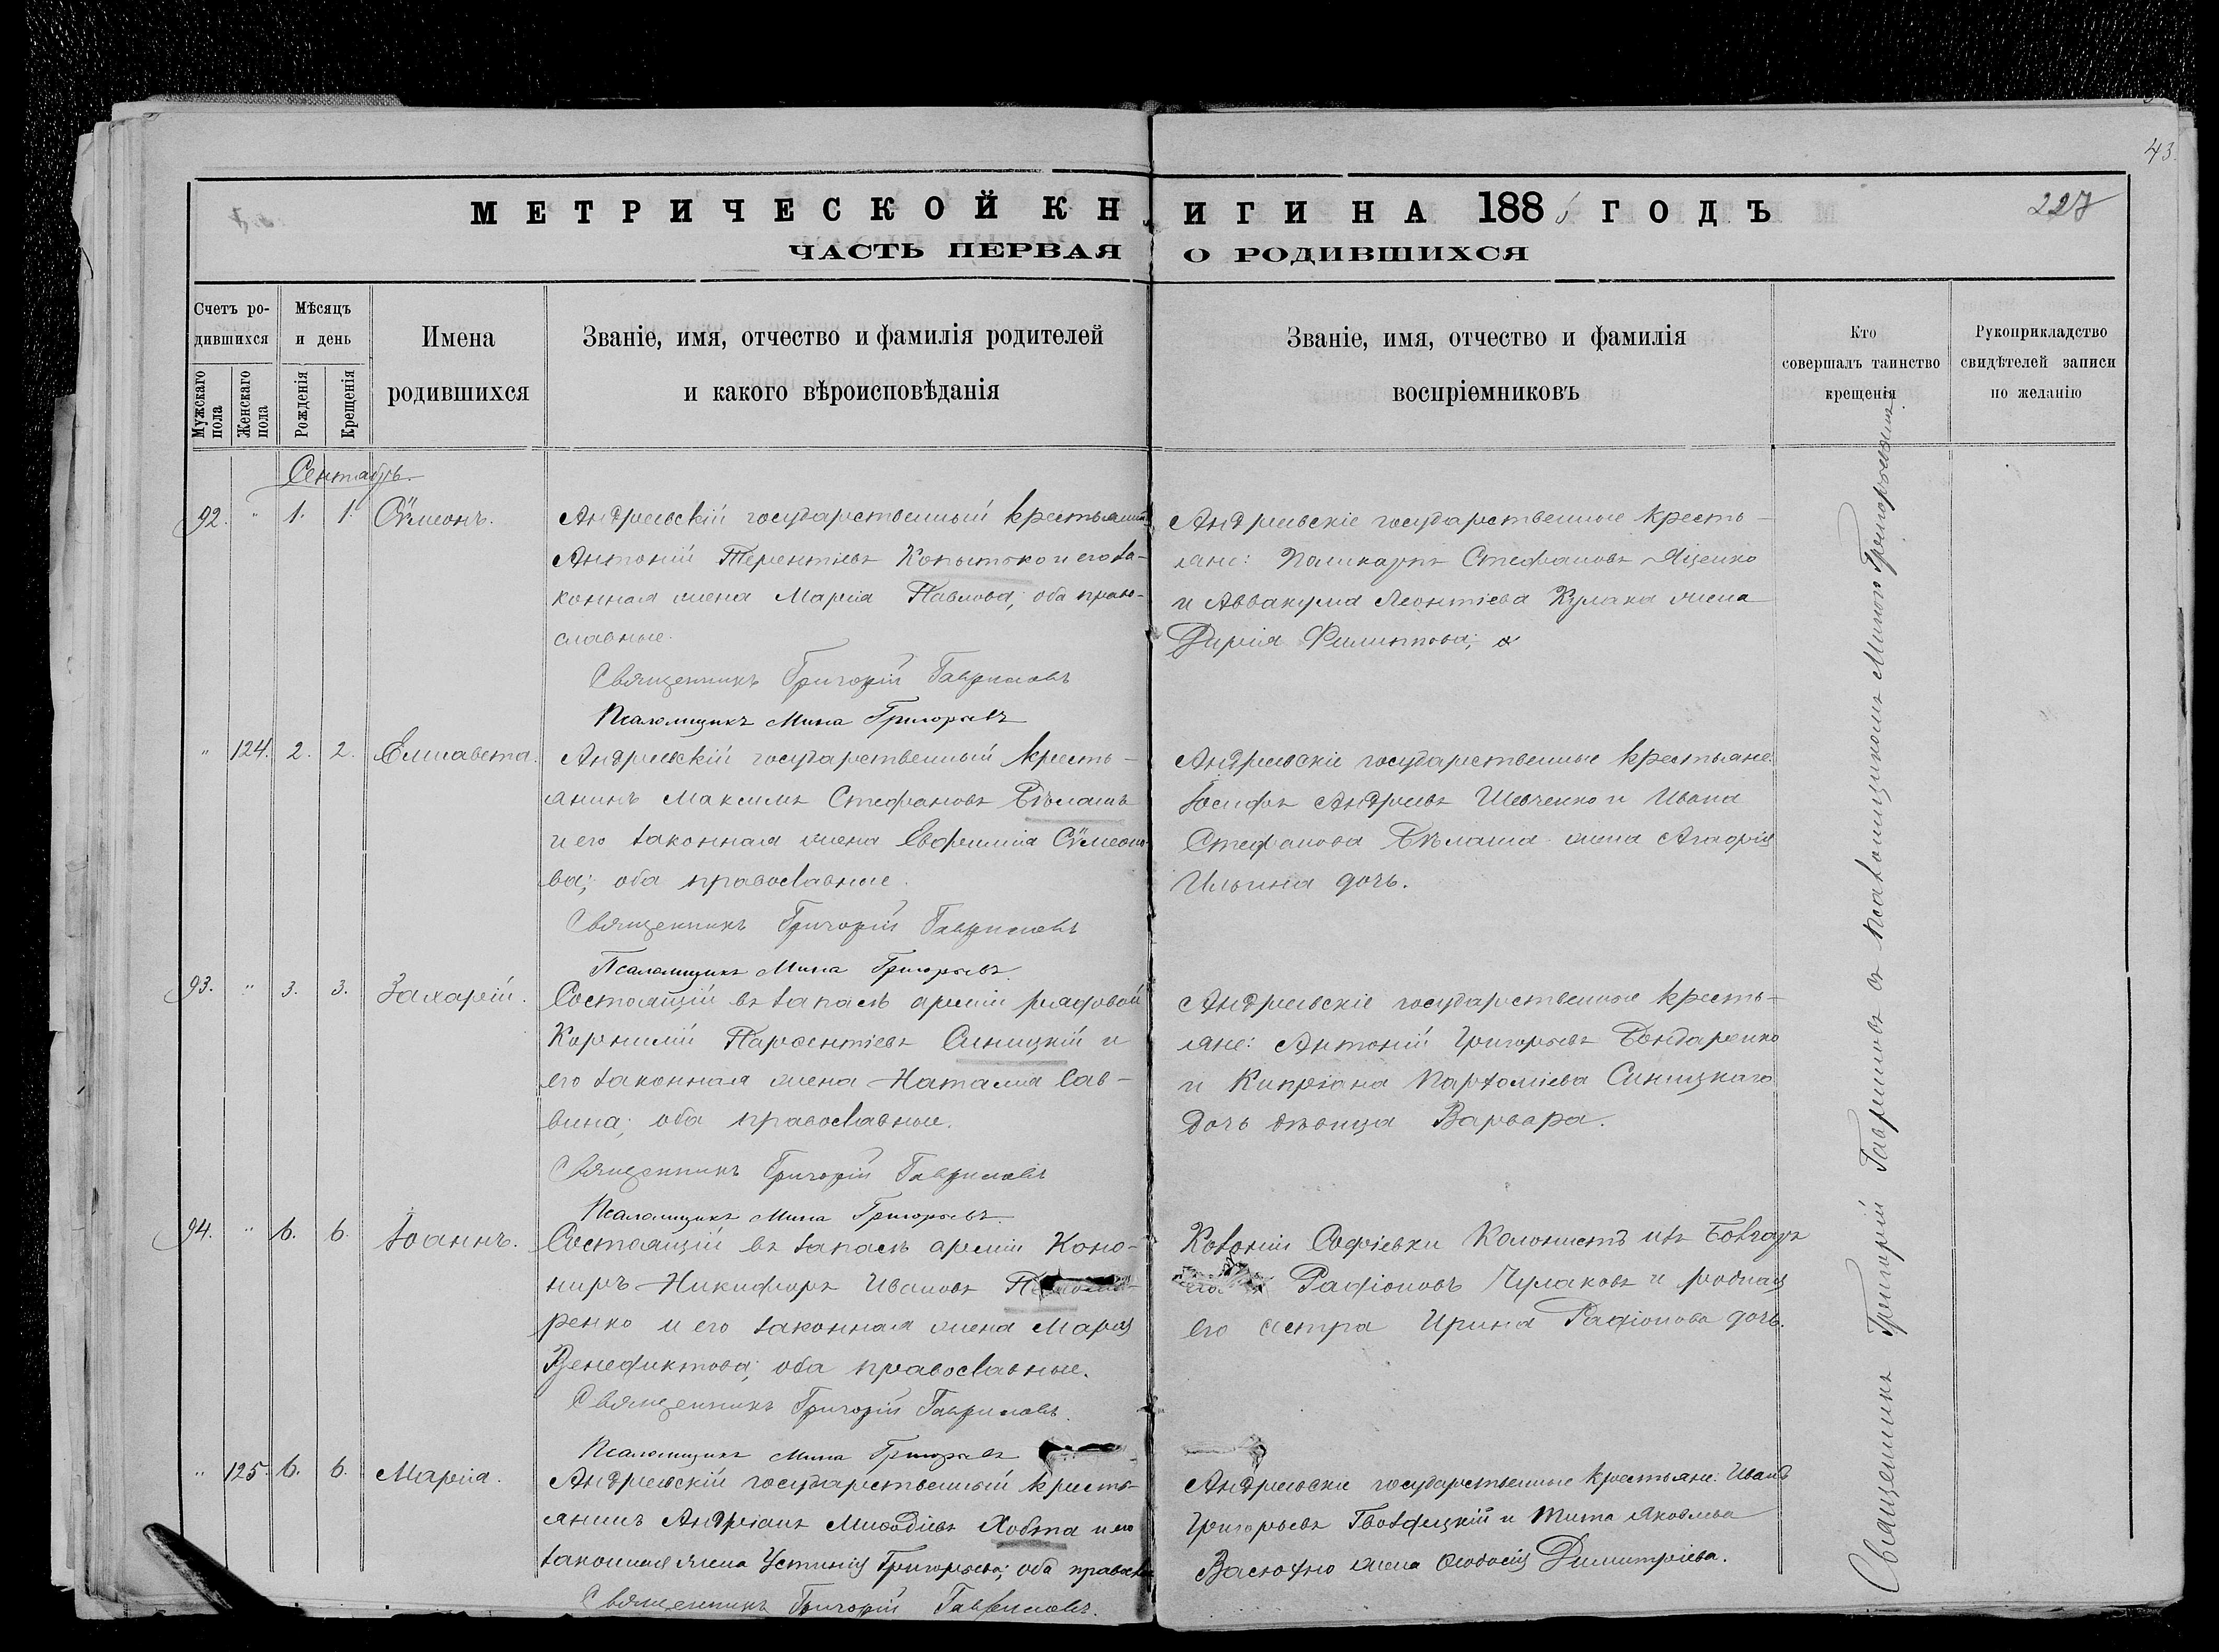 43.
МЕТРИЧЕСКОЙ КНИГИ НА 188 ГОДЪ
227
ЧАСТЬ ПЕРВАЯ О РОДИВШИХСЯ
Счетъ ро-
дившихся
Мужскаго пола
Женскаго пола
Мѣсяцъ
и день
Рожденія
Крещенія
Имена
родившихся
Званіе, имя, отчество и фамилія родителей
и какого вѣроисповѣданія
Званіе, имя, отчество и фамилія
воспріемниковъ
Кто
совершалъ таинство
крещенія
Рукоприкладство
свидѣтелей записи
по желанію
Сентябрь.
92. " 1. 1. Сѵмеонъ.
Андреевскій государственный крестьянинъ
Антоній Терентіевъ Копытько и его за-
конная жена Марія Павлова; оба право-
славные.
Священникъ Григорій Гавриловъ
Псаломщикъ Мина Григорьевъ
Андреевскіе государственные кресть-
яне: Поликарпъ Стефановъ Яценко
и Аввакума Леонтіева Кулака жена
Дарія Филиппова;
" 124. 2. 2. Елисавета.
Андреевскій государственный кресть-
янинъ Максимъ Стефановъ Бѣлашъ
и его законная жена Евфимія Сѵмеоно-
ва; оба православные.
Священникъ Григорій Гавриловъ
Псаломщикъ Мина Григорьевъ
Андреевскіе государственные крестьяне:
Іосифъ Андреевъ Шевченко и Ивана
Стефанова Бѣлаша жена Агафія
Ильина дочь.
93. " 3. 3. Захарій.
Состоящій въ запасѣ арміи рядовой
Корнилій Парфентіевъ Синицкій и
его законная жена Наталія Сав-
вина; оба православные.
Священникъ Григорій Гавриловъ
Псаломщикъ Мина Григорьевъ
Андреевскіе государственные кресть-
яне: Антоній Григорьевъ Бондаренко
и Кипріана Синицкаго
дочь дѣвица Варвара.
94. " 6. 6. Іоаннъ.
Состоящій въ запасѣ арміи Коно-
ниръ Никифоръ Ивановъ
ренко и его законная жена Марія
Венедиктова; оба православные.
Священникъ Григорій Гавриловъ.
Псаломщикъ Мина Григорьевъ
Колоніи Софіевки Колонистъ изъ Болгаръ
Радіоновъ Чулаковъ и родная
его сестра Ирина Радіонова дочь.
" 125. 6. 6. Марія.
Андреевскій государственный кресть-
янинъ Андріанъ Меѳодіевъ Хобта и его
законная жена Устинія Григорьева; оба правосл
Священникъ Григорій Гавриловъ.
Андреевскіе государственные крестьяне: Иванъ
Григорьевъ Гвоздецкій и Тита Яковлева
жена Ѳеодосія Димитріева.
Священникъ Григорій Гавриловъ съ псаломщикомъ Миною Григорьевымъ.